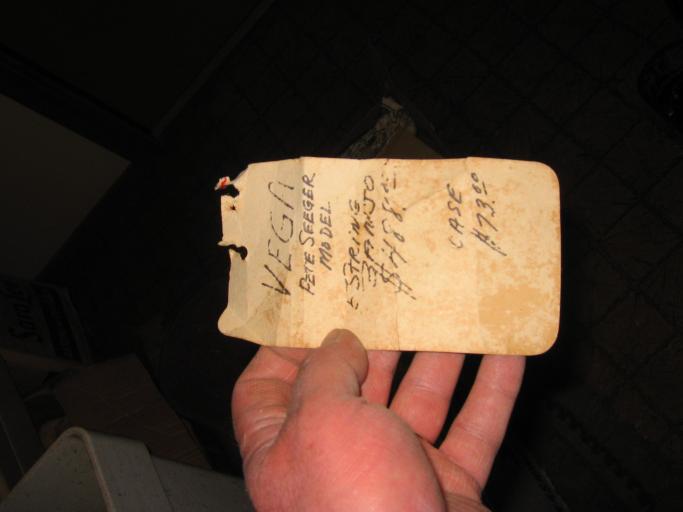 VEGA
PETE SEEGER
MODEL
5 STRING
BANJO
$488.00
CASE
$73.00